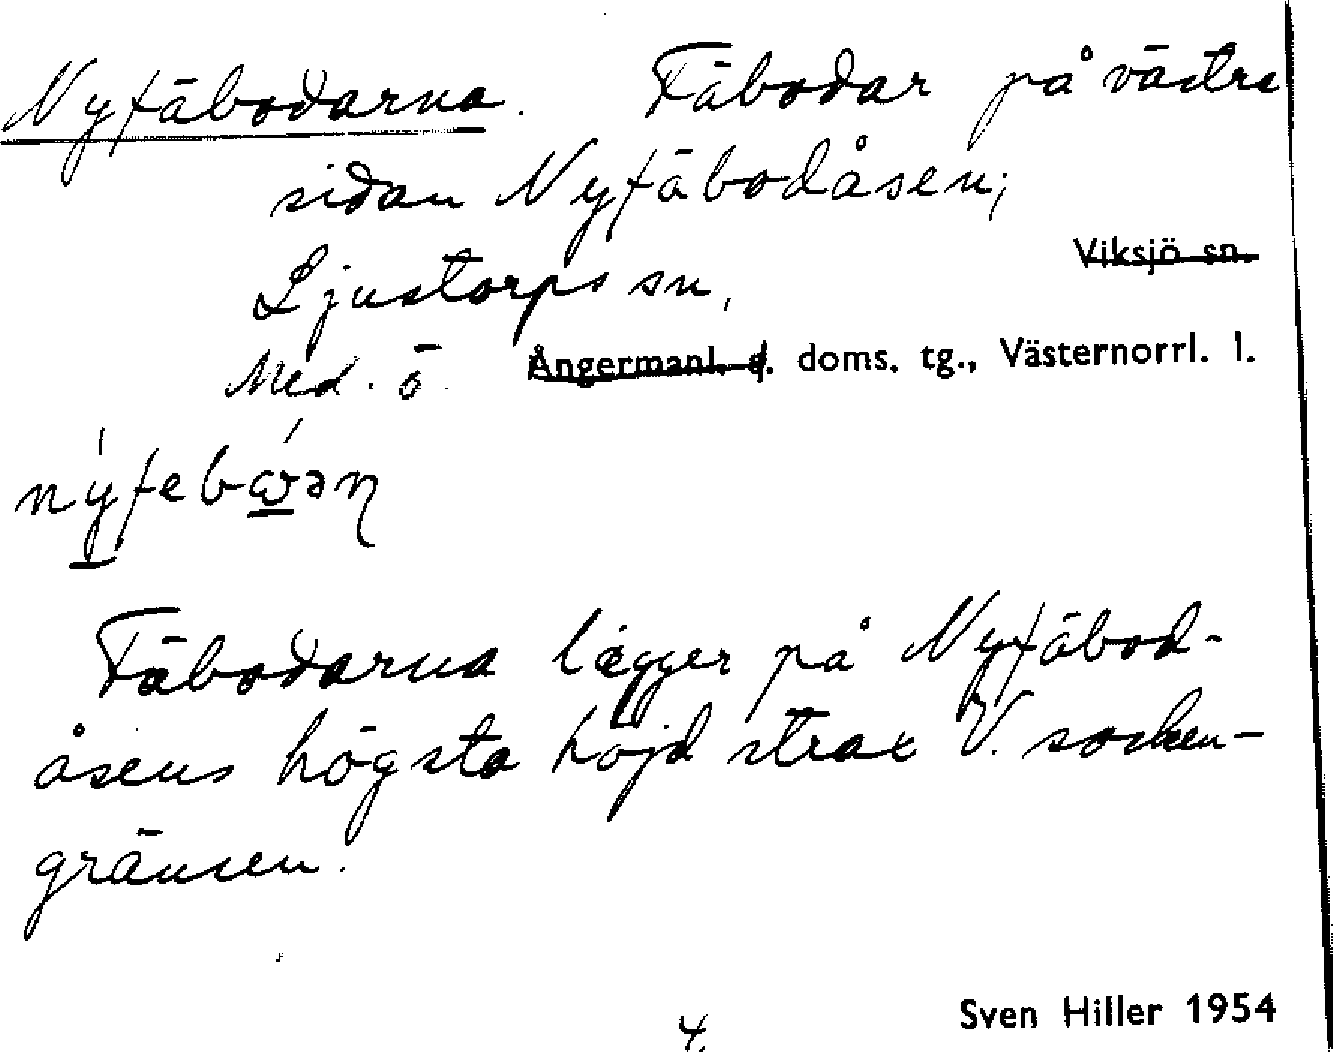 Nyfäbodarna. Fäbodar på västra
sidan Nyfäbodåsen;
Viksjö sn.
Ljustorps sn,
Med. ö. Ångermanl. d. doms. tg., Västernorrl. l.
Fäbodarna ligger på Nyfäbod-
åsens högsta höjd strax V. socken-
gränsen.
4.
Sven Hiller 1954